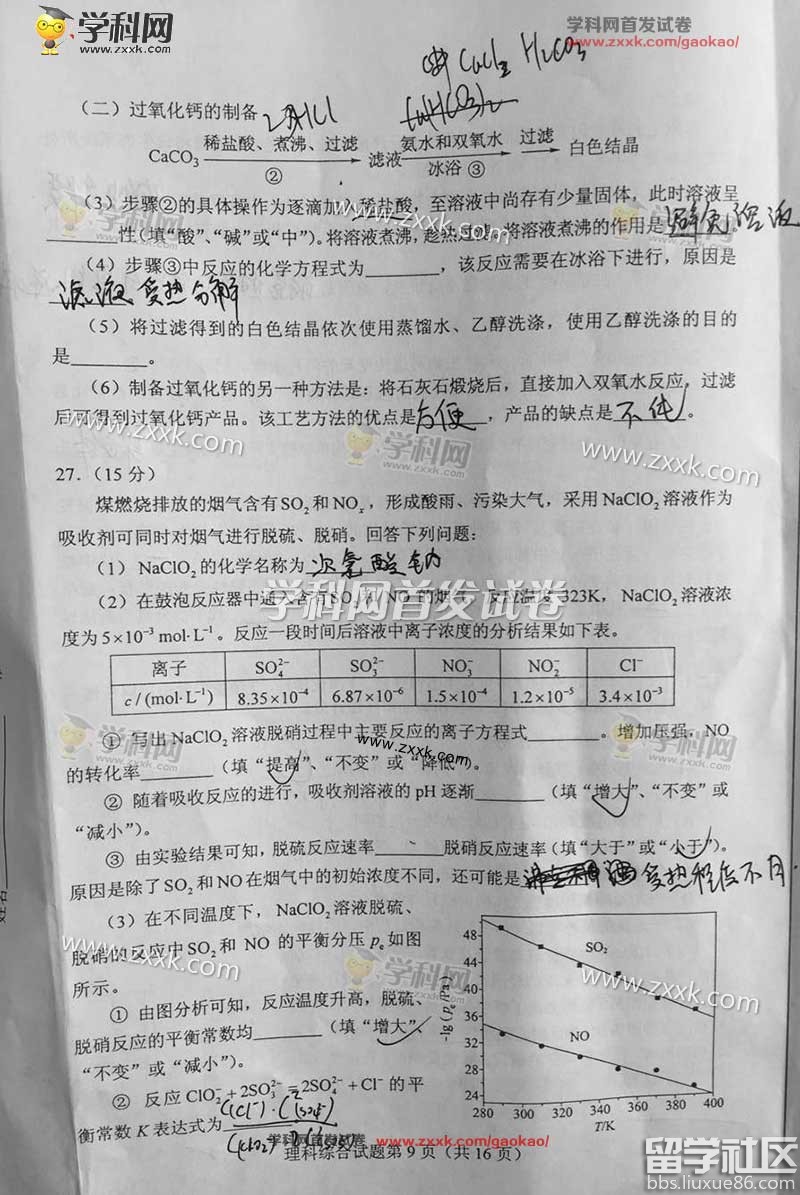 学科网
www.zxxk.com
学科网首发试卷
www.zxxk.com/gaokao/
CaCl₂ H₂CO₃
（二）过氧化钙的制备 2HCl
CaCO₃ 稀盐酸、煮沸、过滤 ② 滤液 氨水和双氧水 冰浴 ③ 过滤 白色结晶
（3）步骤②的具体操作为逐滴加入稀盐酸，至溶液中尚存有少量固体，此时溶液呈
______性（填“酸”、“碱”或“中”）。将溶液煮沸，趁热过滤。将溶液煮沸的作用是避免溶液
（4）步骤③中反应的化学方程式为________，该反应需要在冰浴下进行，原因是
滤液受热分解
（5）将过滤得到的白色结晶依次使用蒸馏水、乙醇洗涤，使用乙醇洗涤的目的
是________。
（6）制备过氧化钙的另一种方法是：将石灰石煅烧后，直接加入双氧水反应，过滤
后可得到过氧化钙产品。该工艺方法的优点是方便，产品的缺点是不纯。
www.zxxk.com
学科网
www.zxxk.com
27.（15 分）
煤燃烧排放的烟气含有SO₂和NOₓ，形成酸雨、污染大气，采用NaClO₂溶液作为
吸收剂可同时对烟气进行脱硫、脱硝。回答下列问题：
（1）NaClO₂的化学名称为次氯酸钠
学科网首发试卷
（2）在鼓泡反应器中通入含有SO₂和NO的烟气，反应温度323K，NaClO₂溶液浓
度为5×10⁻³ mol·L⁻¹。反应一段时间后溶液中离子浓度的分析结果如下表。
离子 SO₄²⁻ SO₃²⁻ NO₃⁻ NO₂⁻ Cl⁻
c/(mol·L⁻¹) 8.35×10⁻⁴ 6.87×10⁻⁶ 1.5×10⁻⁴ 1.2×10⁻⁵ 3.4×10⁻³
① 写出NaClO₂溶液脱硝过程中主要反应的离子方程式________。增加压强，NO
的转化率________（填“提高”、“不变”或“降低”）。
www.zxxk.com
② 随着吸收反应的进行，吸收剂溶液的 pH 逐渐________（填“增大”、“不变”或
“减小”）。
③ 由实验结果可知，脱硫反应速率________脱硝反应速率（填“大于”或“小于”）。
原因是除了SO₂和NO在烟气中的初始浓度不同，还可能是受热程度不同
（3）在不同温度下，NaClO₂溶液脱硫、
脱硝的反应中SO₂和 NO 的平衡分压 pₑ如图
所示。
① 由图分析可知，反应温度升高，脱硫、
脱硝反应的平衡常数均________（填“增大”、
“不变”或“减小”）。
② 反应ClO₂⁻+2SO₃²⁻=2SO₄²⁻+Cl⁻的平
衡常数 K 表达式为
-lg(pₑ/Pa)
48
44
40
36
32
28
24
SO₂
NO
280 300 320 340 360 380 400
T/K
学科网首发试卷 www.zxxk.com/gaokao/
理科综合试题第 9 页（共 16 页）
姓名
留学社区
bbs.liuxue86.com